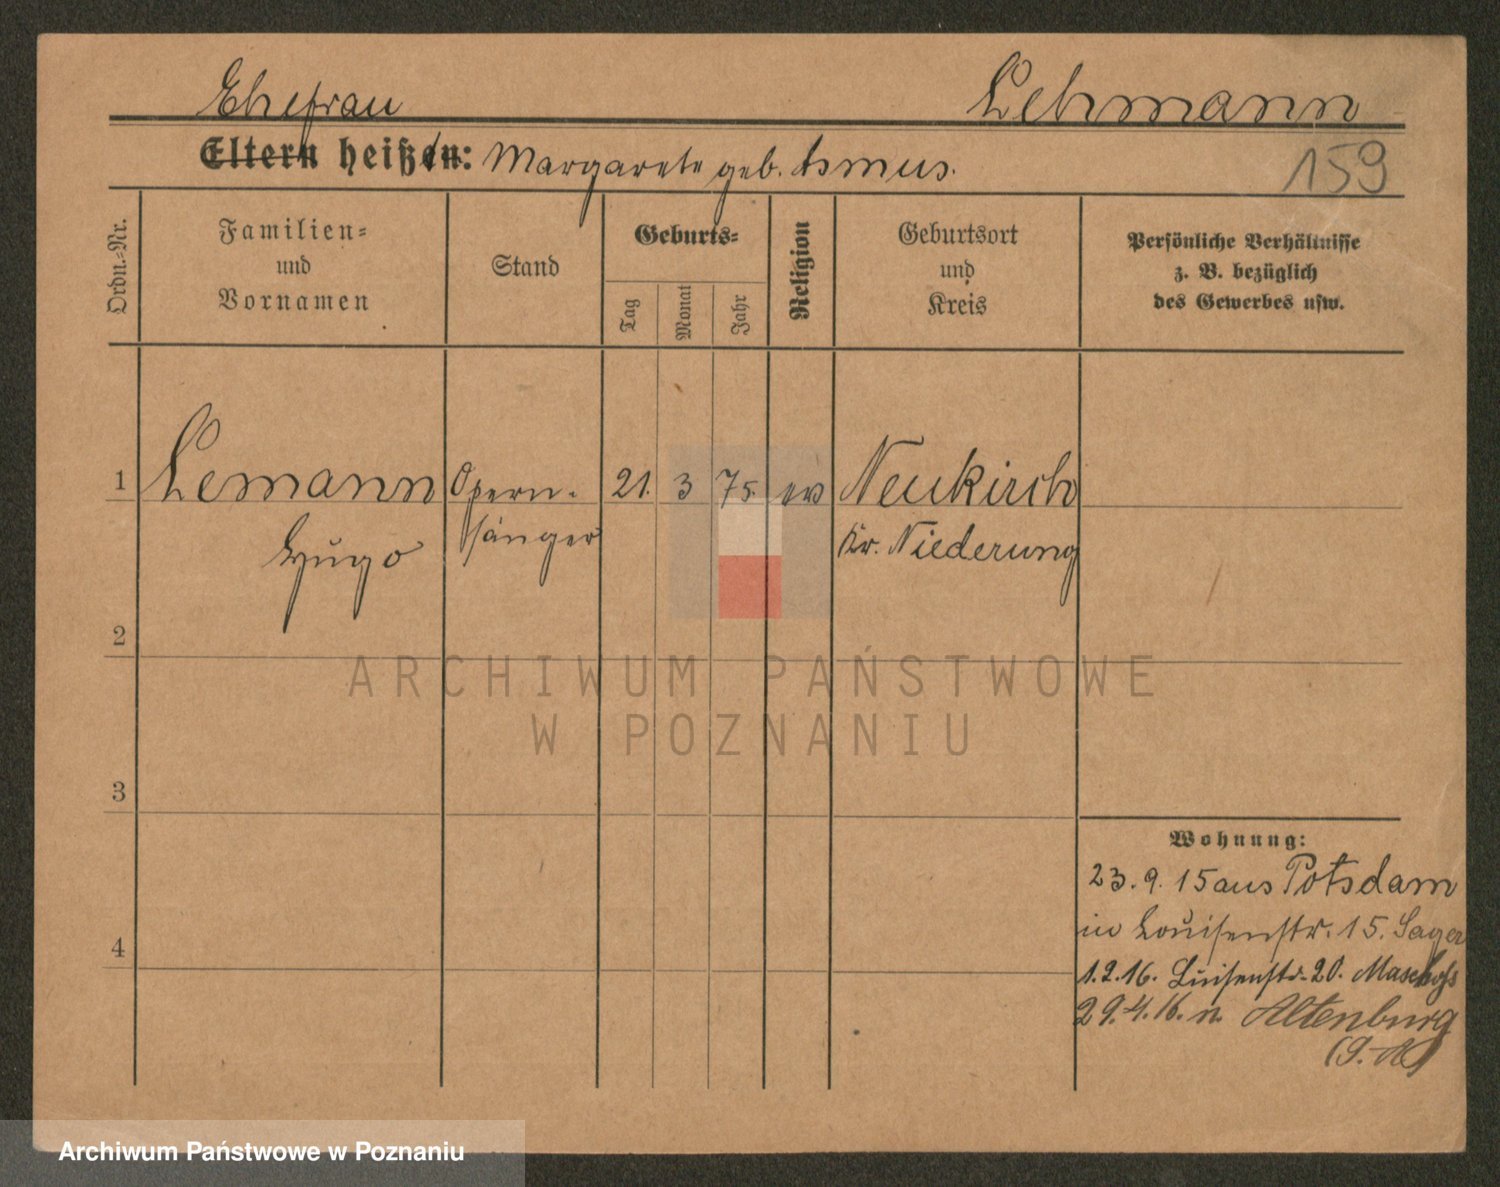 Ehefrau Lehmann
Eltern heißen: Margarete geb. Asmus.
159
Ordn.-Nr.
Familien-
und
Vornamen
Stand
Geburts-
Tag
Monat
Jahr
Religion
Geburtsort
und
Kreis
Persönliche Verhältnisse
z. B. bezüglich
des Gewerbes usw.
1 Lemann Opern- 21. 3 75. ev Neukirch
Hugo sänger Kr. Niederung
2
3
4
Wohnung:
23. 9. 15 aus Potsdam
in Louisenstr. 15. Sager
1.2.16. Luisenstr. 20.
29.4.16. n. Altenburg
ARCHIWUM PAŃSTWOWE
W POZNANIU
Archiwum Państwowe w Poznaniu